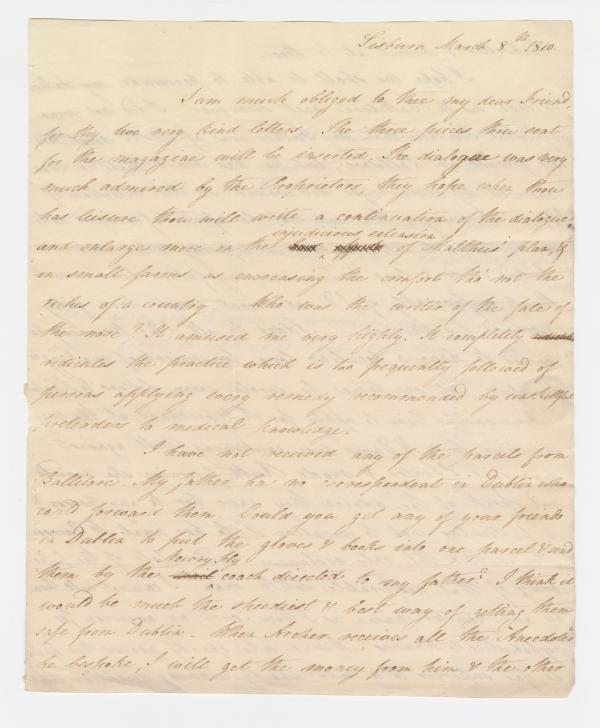 Lisburn March 8th 1810.
I am much obliged to thee my dear Friend,
for thy two very kind letters. The three pieces thou sent
for the magazine will be inserted. The dialogue was very
much admired by the Proprietors, they hope when thou
has leisure thou will write a continuation of the dialogue,
injudicious extension
and enlarge more on the of Malthus' plan, &
on small farms as increasing the comfort tho' not the
riches of a country. Who was the writer of the fate of
the nose? It amused me very highly. It completely
ridicules the practice which is too frequently followed of
persons applying every remedy recommended by unskillful
pretenders to medical knowledge.
I have not received any of the parcels from
Ballitore. My father has no correspondent in Dublin who
could forward them. Could you get any of your friends
in Dublin to put the gloves & books into one parcel & send
Newry Fly
them by the mail coach directed to my father? I think it
would be much the speediest & best way of getting them
safe from Dublin. When Archer receives all the Anecdotes
he bespoke, I will get the money from him & the other